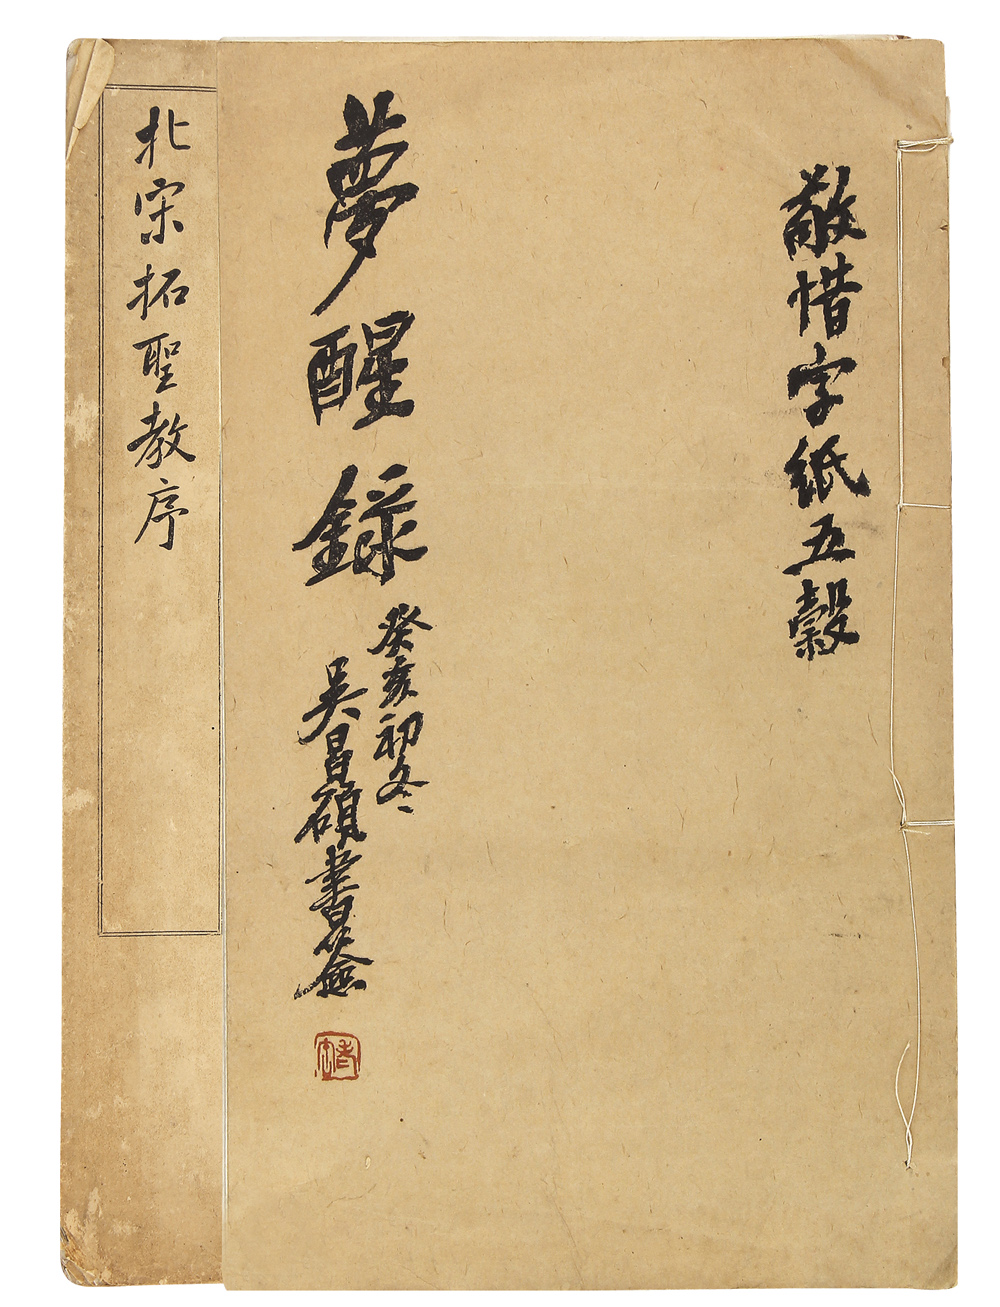 敬惜字紙五穀
夢醒錄
癸亥初冬
吳昌碩書耑
北宋拓聖教序